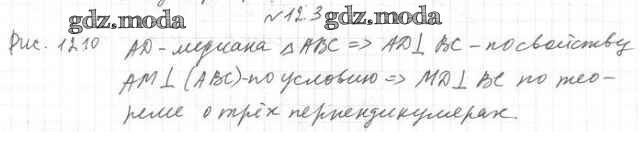 № 12.3
gdz.moda gdz.moda
Рис. 12.10 AD - медиана △ABC => AD⊥ BC - по свойству
AM⊥(ABC) - по условию => MD⊥ BC по тео-
реме о трёх перпендикулярах.